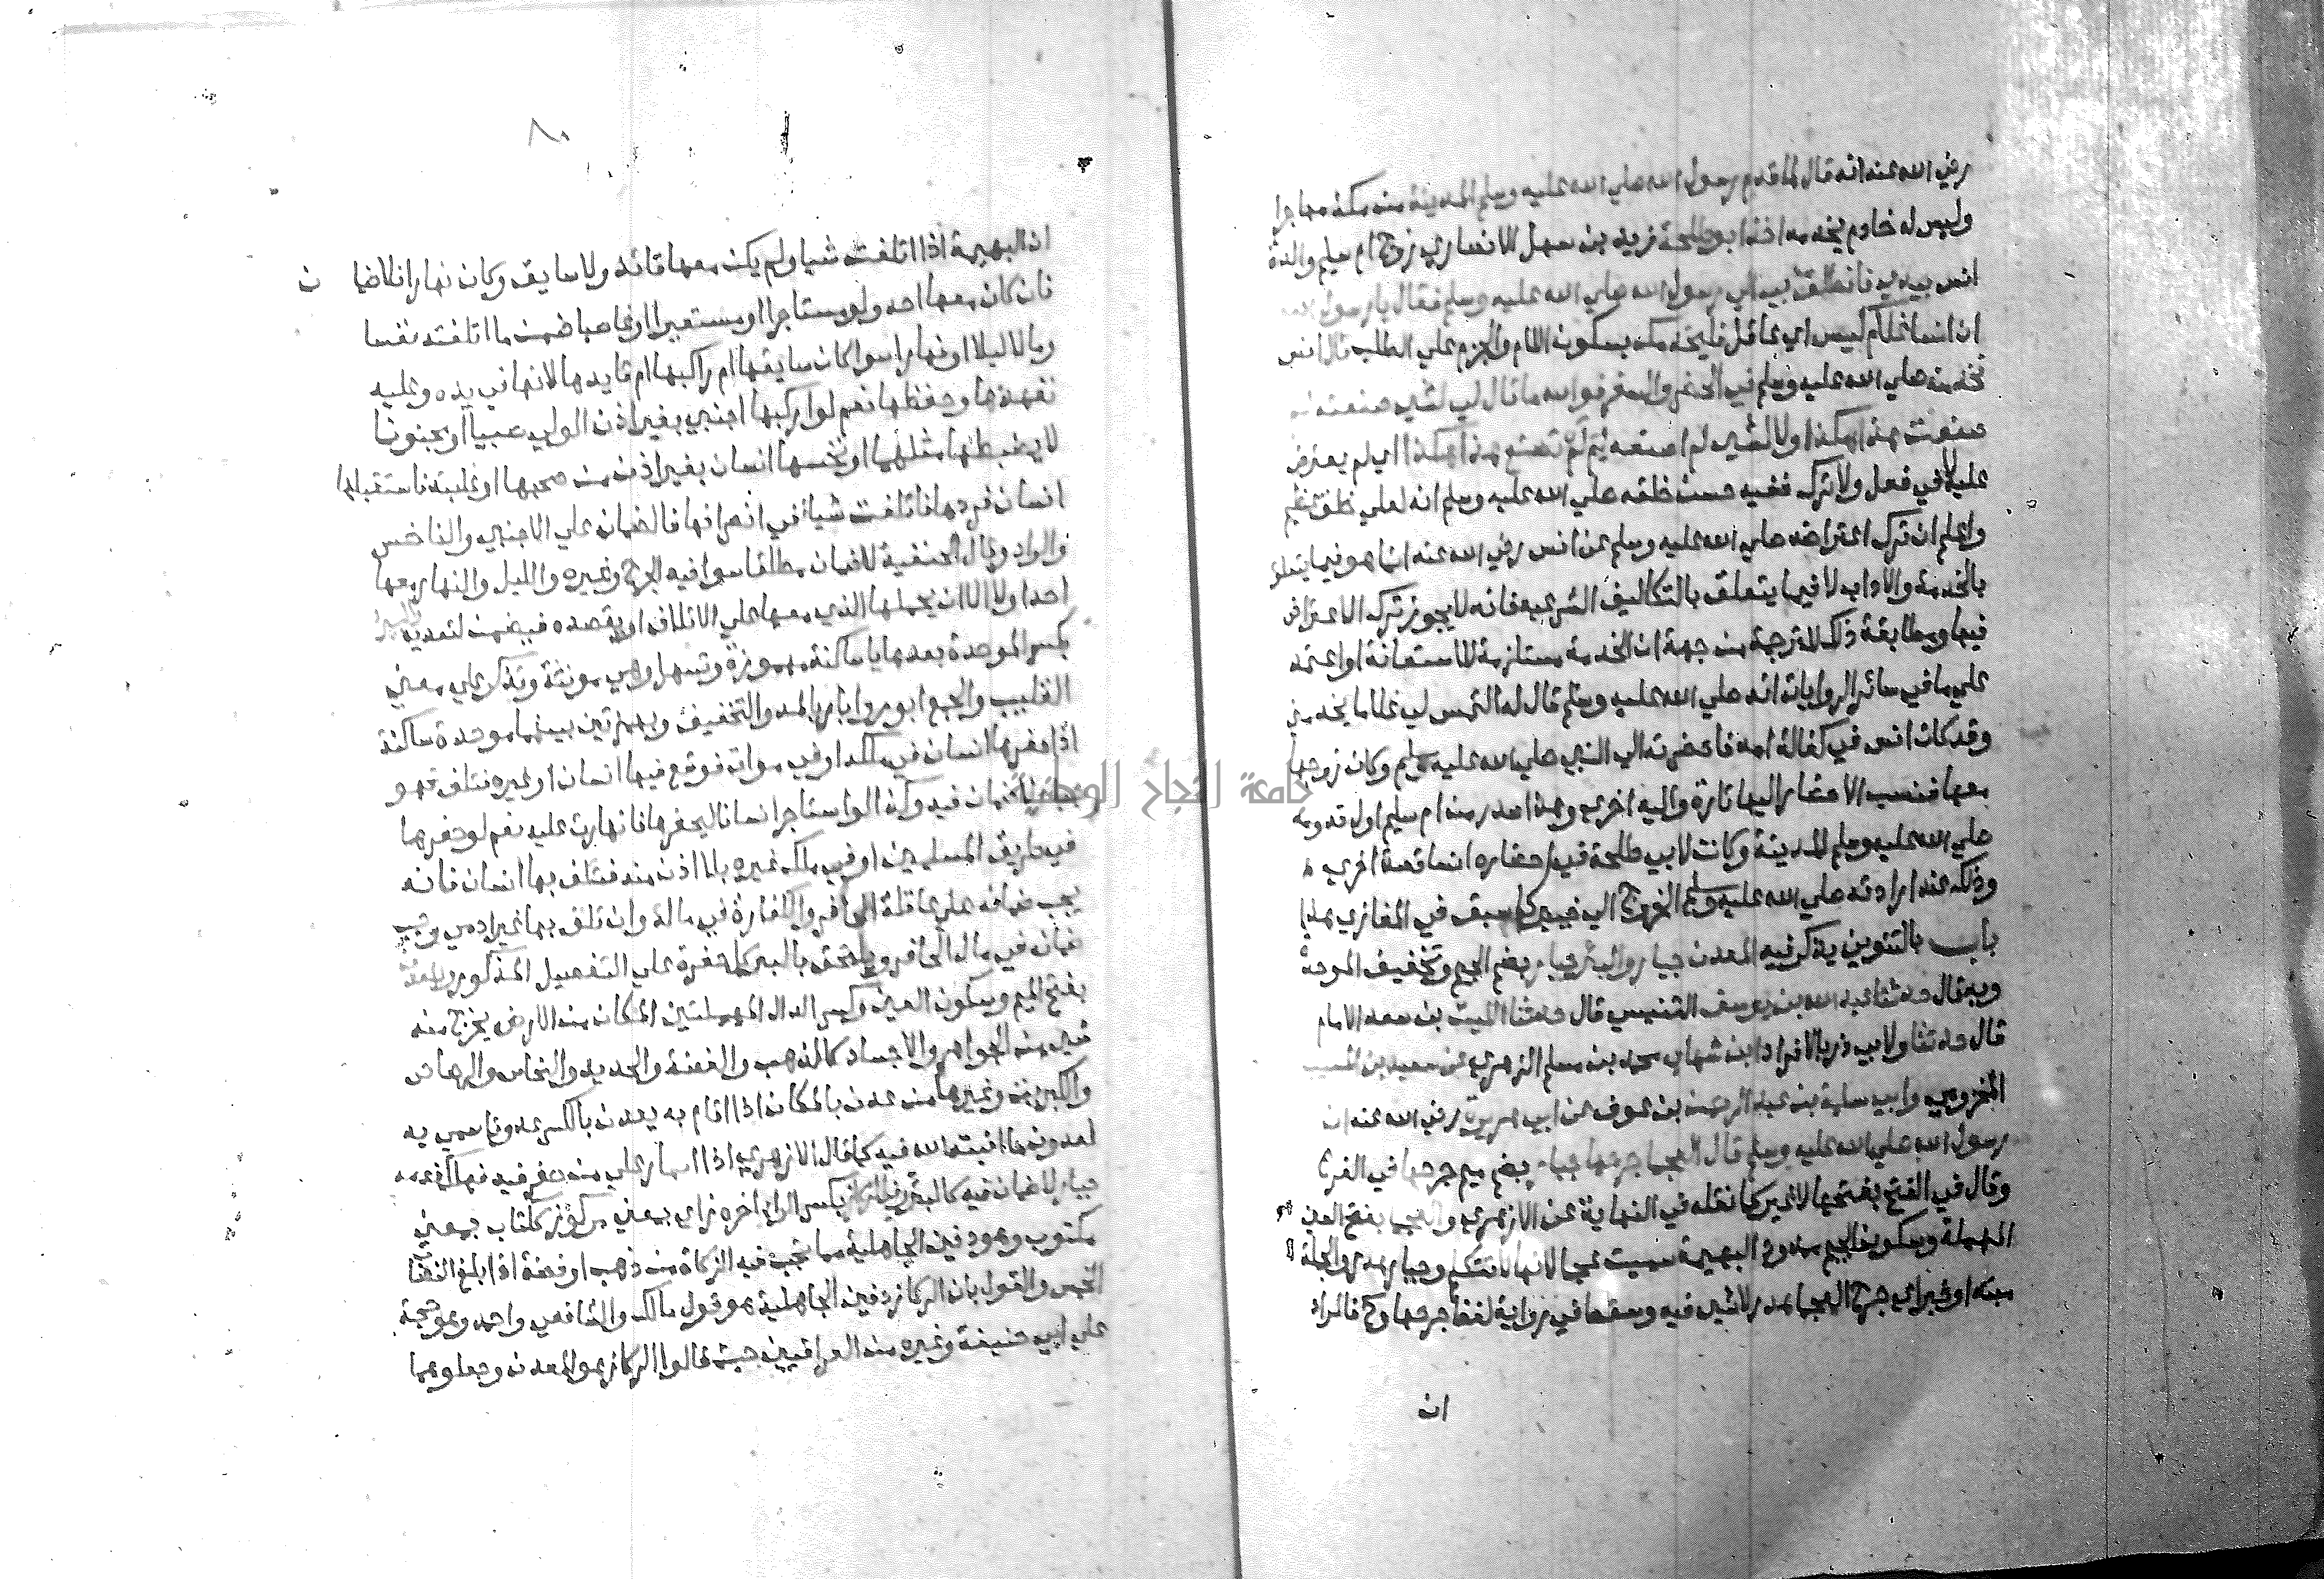 رضي الله عنه انه قال لما قدم رسول الله صلي الله عليه وسلم المدينة من مكة مهاجرا
وليس له خادم يخدمه اخذ ابو طلحة زيد بن سهل الانصاري زوج ام سليم والدة
انس بيدي فانطلق بي الي رسول الله صلي الله عليه وسلم فقال يا رسول الله
ان انسا غلام كيس اي عاقل فليخدمك بسكون اللام والجزم علي الطلب قال انس
فخدمته صلي الله عليه وسلم في الحضر والسفر فوالله ما قال لي لشي صنعته لم
صنعت هذا هكذا ولا لشي لم اصنعه لم لم تصنع هذا هكذا اي لم يعترض
عليه لا في فعل ولا ترك ففيه حسن خلقه صلي الله عليه وسلم انه لعلي خلق عظيم
واعلم ان ترك اعتراضه صلي الله عليه وسلم عن انس رضي الله عنه انما هو فيما يتعلق
بالخدمة والاداب لا فيما يتعلق بالتكاليف الشرعيه فانه لا يجوز ترك الاعتراض
فيها ومطابقة ذلك للترجمة من جهة ان الخدمة مستلزمة للاستعانة او اعتمد
علي ما في سائر الروايات انه صلي الله عليه وسلم قال له التمس لي غلاما يخدمني
وقد كان انس في كفالة امه فاحضرته الي النبي صلي الله عليه وسلم وكان زوجها
معها فنسب الاحضار اليها تارة واليه اخري وهذا صدر من ام سليم اول قدومه
صلي الله عليه وسلم المدينة وكانت لابي طلحة في احضاره انسا قصة اخري
وذلك عند ارادته صلي الله عليه وسلم الخروج الي خيبر كما سبق في المغازي هذا
باب بالتنوين يذكر فيه المعدن جبار والبئر جبار بضم الجيم وتخفيف الموحدة
وبه قال حدثنا عبد الله بن يوسف التنيسي قال حدثنا الليث بن سعد الامام
قال حدثنا ولابي ذر بالافراد ابن شهاب محمد بن مسلم الزهري عن سعيد بن المسيب
المخزومي وابي سلمة بن عبد الرحمن بن عوف عن ابي هريرة رضي الله عنه ان
رسول الله صلي الله عليه وسلم قال العجما جرحها جبار بضم جيم جرحها في الفرع
وقال في الفتح بفتحها لا غير كما نقله في النهاية عن الازهري والعجما بفتح العين
المهملة وسكون الجيم ممدودا البهيمة سميت عجما لانها لا تتكلم وجبار هدر والجملة
مبتدا وخبر اي جرح العجما هدر لا شي فيه وسقط في رواية لفظ جرحها وح فالمراد
ان
٨٠
ان البهيمة اذا اتلفت شيا ولم يكن معها قائد ولا سايق وكان نهارا فلا ضمان
فان كان معها احد ولو مستاجرا او مستعيرا او غاصبا ضمن ما اتلفته نفسا
ومالا ليلا او نهارا سوا كان سايقها ام راكبها ام قايدها لانها في يده وعليه
تعهدها وحفظها نعم لو اركبها اجنبي بغير اذن الولي صبيا او مجنونا
لا يضبطها مثلهما او نخسها انسان بغير اذن من صحبها او غلبته فاستقبلها
انسان فردها فاتلفت شيا في انصرافها فالضمان علي الاجنبي والناخس
والراد وقال الحنفية لا ضمان مطلقا سوا فيه الجرح وغيره والليل والنهار معها
احد او لا الا ان يحملها الذي معها علي الاتلاف او يقصده فيضمن لتعديه والبئر
بكسر الموحدة بعدها يا ساكنة مهموزة وتسهل وهي مونثة وتذكر علي معني
القليب والجمع ابور وابار بالمد والتخفيف وبهمزتين بينهما موحدة ساكنة
اذا حفرها انسان في ملكه او في موات فوقع فيها انسان او غيره فتلف فهو
جبار لا ضمان فيه وكذا لو استاجر انسانا ليحفرها فانهارت عليه نعم لو حفرها
في طريق المسلمين او في ملك غيره بلا اذن منه فتلف بها انسان فانه
يجب ضمانه علي عاقلة الحافر والكفارة في ماله وان تلف بها غير ادمي وجب
ضمانه في مال الحافر ويلتحق بالبير كل حفرة علي التفصيل المذكور والمعدن
بفتح الميم وسكون العين وكسر الدال المهملتين المكان من الارض يخرج منه
شي من الجواهر والاجساد كالذهب والفضة والحديد والنحاس والرصاص
والكبريت وغيرها من عدن بالمكان اذا اقام به يعدن بالكسر عدونا سمي به
لعدون ما انبته الله فيه كما قال الازهري اذا انهار علي من حفر فيه فهلك فدمه
جبار لا ضمان فيه كالبئر وفي الركاز بكسر الراء اخره زاي بمعني مركوز ككتاب بمعني
مكتوب وهو دفين الجاهلية مما تجب فيه الزكاة من ذهب او فضة اذا بلغ النصاب
الخمس والقول بان الركاز دفين الجاهلية هو قول مالك والشافعي واحمد وهو حجة
علي ابي حنيفة وغيره من العراقيين حيث قالوا الركاز هو المعدن وجعلوهما
جامعة النجاح الوطنية